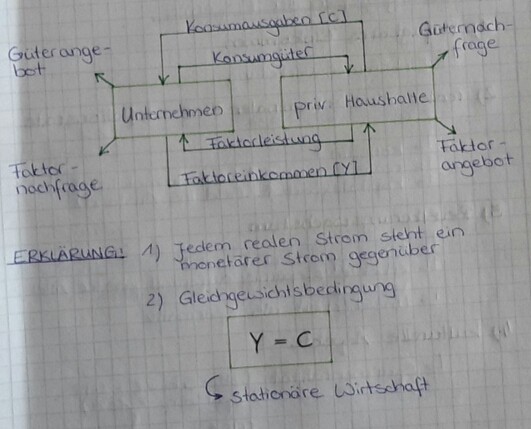 Konsumausgaben [C]
Güterange-
bot
Güternach-
frage
Konsumgüter
Unternehmen
priv. Haushalte
Faktorleistung
Faktor-
nachfrage
Faktor-
angebot
Faktoreinkommen [Y]
ERKLÄRUNG: 1) Jedem realen Strom steht ein
monetärer Strom gegenüber
2) Gleichgewichtsbedingung
Y = C
stationäre Wirtschaft